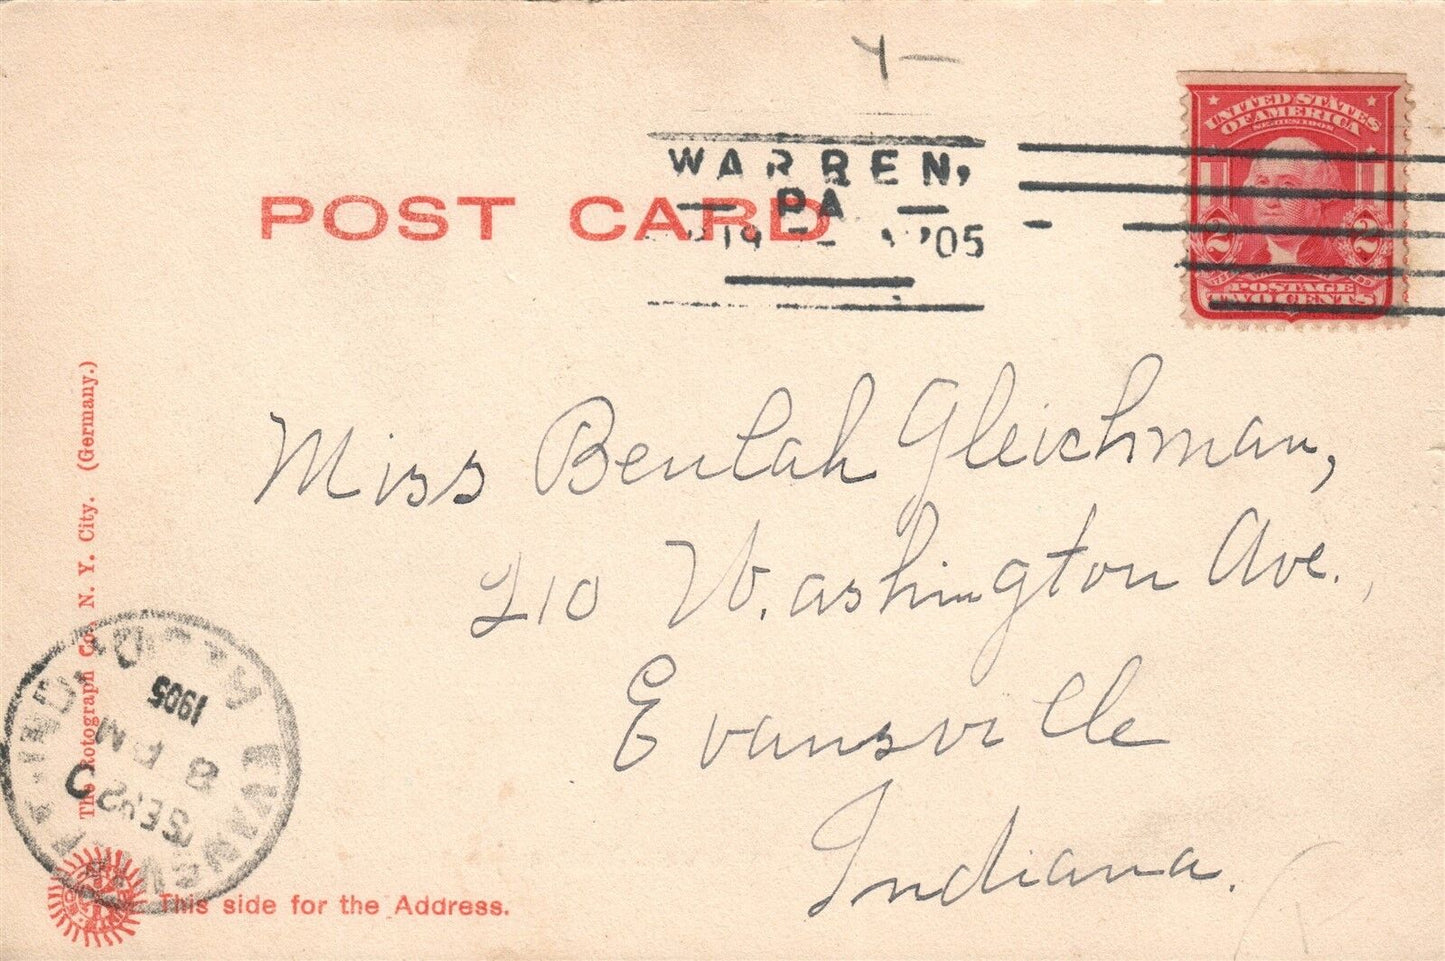 UNITED STATES
OF AMERICA
SERIES 1902
2 2
POSTAGE
TWO CENTS
WARREN,
PA
19 '05
POST CARD
Miss Beulah Gleichman,
210 Washington Ave.,
Evansville
Indiana.
The Rotograph Co., N. Y. City. (Germany.)
EVANSVILLE, IND.
SEP 20
8 PM
1905
This side for the Address.